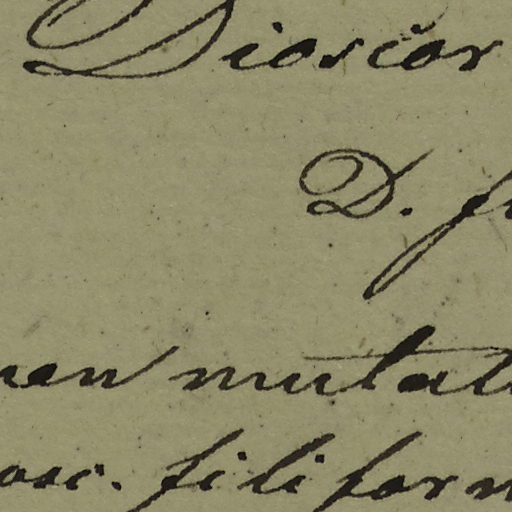 Dioscor
D. fi
men mutat
osc. filiform